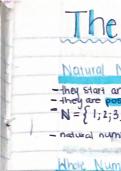 The
Natural N
- they start a
- they are pos
ℕ = { 1; 2; 3
- natural num
Whole Num